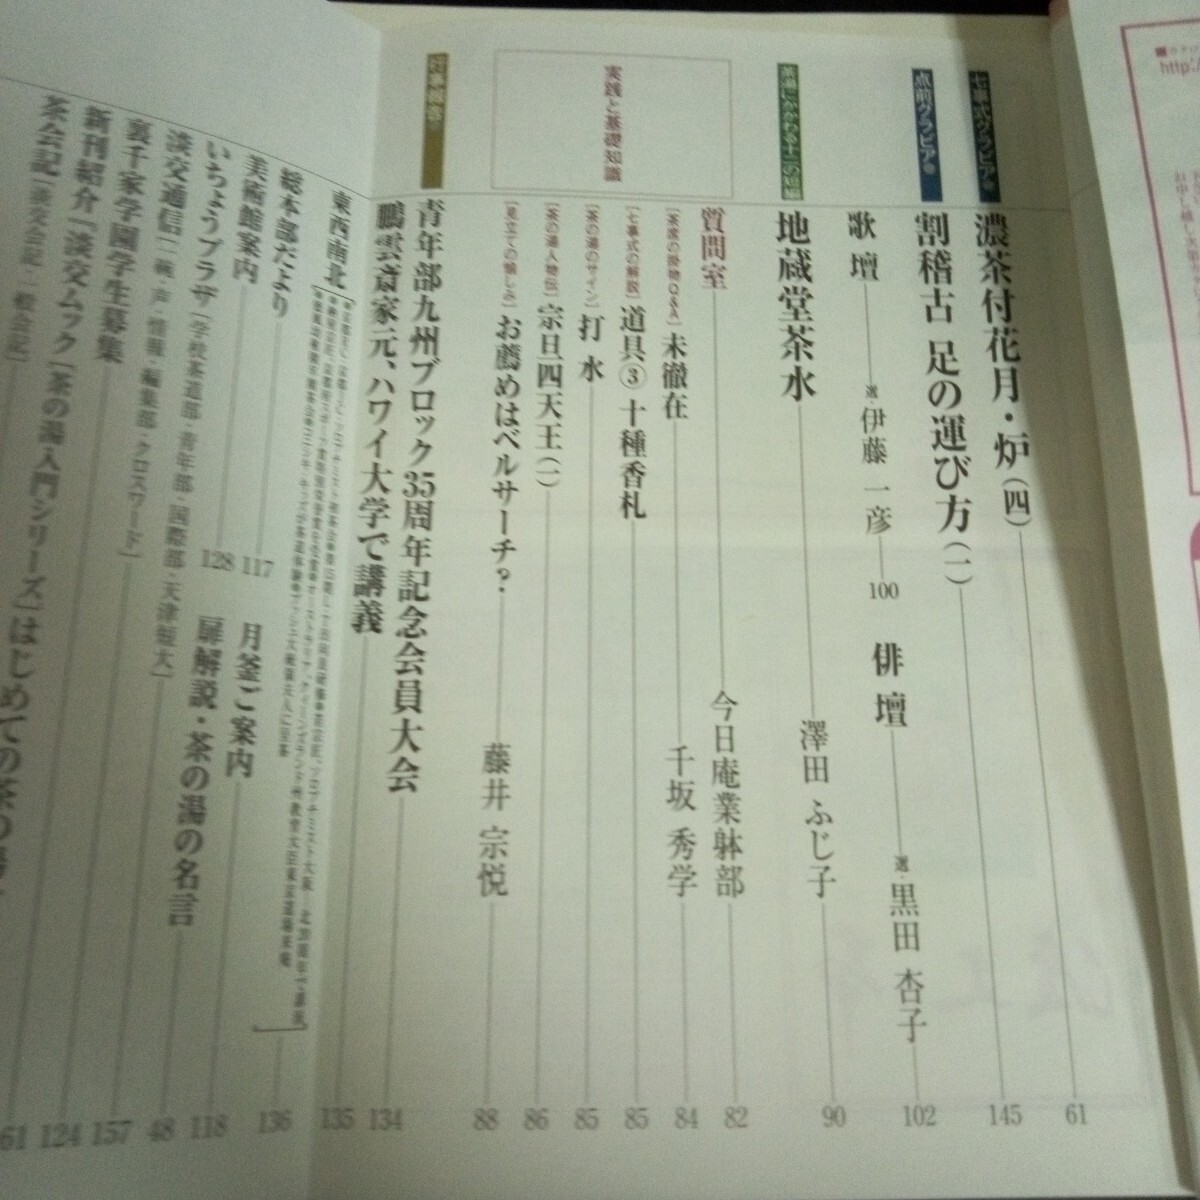 http:/
七事式グラビア
濃茶付花月・炉（四） 61
点前グラビア
割稽古 足の運び方（一） 145
歌壇 選・伊藤一彦 100
俳壇 選・黒田杏子 102
茶湯にかかわる十二の短編
地蔵堂茶水 澤田ふじ子 90
実践と基礎知識
質問室 今日庵業躰部 82
［茶席の掛物Q&A］未徹在 千坂秀学 84
［七事式の解説］道具③ 十種香札 85
［茶の湯のサイン］打水 85
［茶の湯人物伝］宗旦四天王（一） 86
［見立ての愉しみ］お薦めはベルサーチ？ 藤井宗悦 88
青年部九州ブロック35周年記念会員大会 134
鵬雲斎家元、ハワイ大学で講義 135
東西南北 136
総本部だより 117
月釜ご案内 118
美術館案内 128
扉解説・茶の湯の名言 48
いちょうプラザ［学校茶道部・青年部・国際部・天津短大］
淡交通信［一碗・声・情報・編集部・クロスワード］ 157
裏千家学園学生募集 124
新刊紹介『淡交ムック［茶の湯入門シリーズ］はじめての茶の湯 61
茶会記［淡交会記・一般会記］